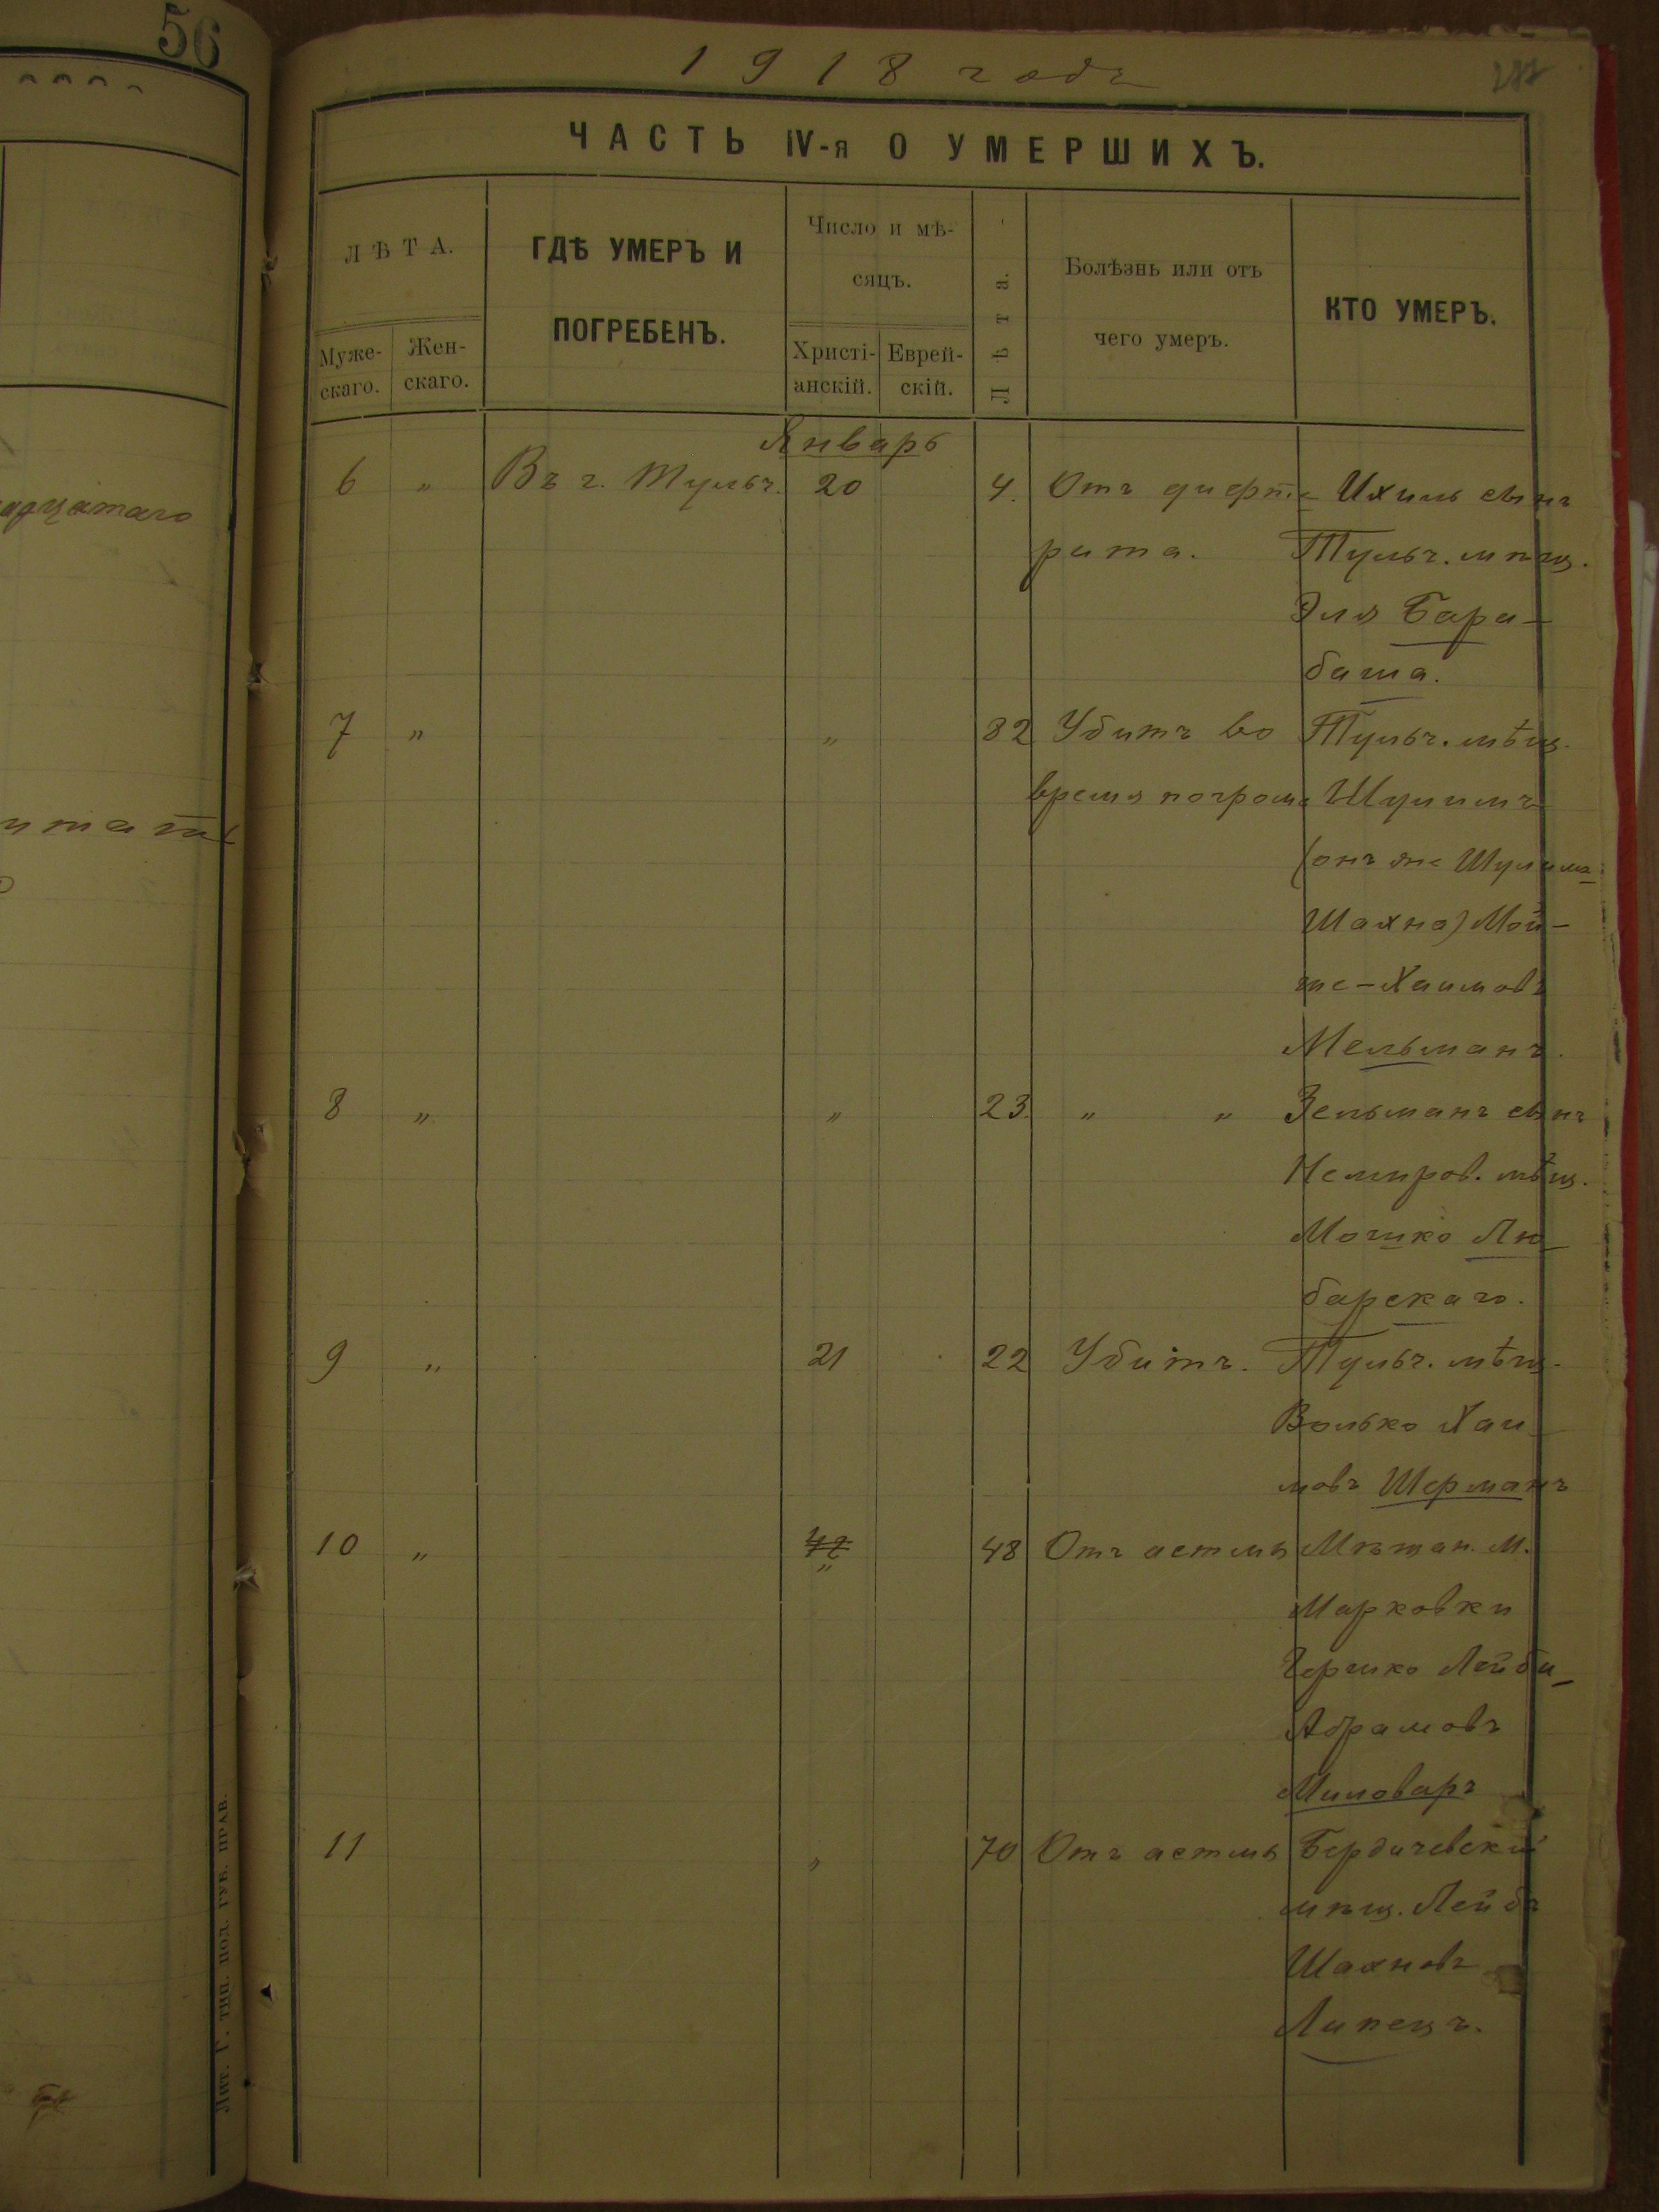 56
1918 годъ
ЧАСТЬ IV-я О УМЕРШИХЪ.
ЛѢТА.
Муже-
скаго.
Жен-
скаго.
ГДѢ УМЕРЪ И
ПОГРЕБЕНЪ.
Число и мѣ-
сяцъ.
Христі-
анскій.
Еврей-
скій.
Лѣта.
Болѣзнь или отъ
чего умеръ.
КТО УМЕРЪ.
Январь
6 " Въ г. Тульч. 20 4. Отъ дифте- Ихиль сынъ
рита. Тульч. мѣщ.
Эля Бара-
баша.
7 " " 82 Убитъ во Тульч. мѣщ.
время погрома Шулимъ
(онъ же Шулимъ
Шахна) Мой-
ше-Хаимовъ
Мельманъ.
8 " " 23 " " Зельманъ сынъ
Немиров. мѣщ.
Мошко Лю-
барскаго.
9 " 21 22 Убитъ. Тульч. мѣщ.
Волько Хаи-
мовъ Шерманъ
10 " " 48 Отъ астмы Мѣщан. м.
Марковки
Гершко Лейба-
Абрамовъ
Миловаръ
11 " 70 Отъ астмы Бердичевскій
мѣщ. Лейбъ
Шахновъ
Липецъ.
адцатаго
Лит. Г. тип. под. губ. прав.